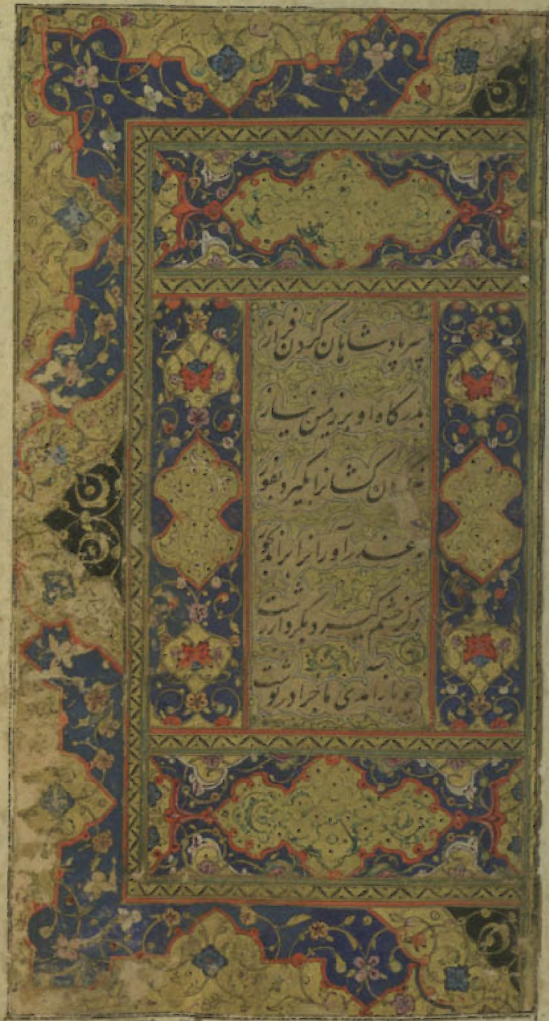 سر پادشاهان کردن فراز
بدرکاه او بر زمین نیاز
نه کردن کشانرا بکیرد بفور
نه عذرآورانرا براند بجور
وکر خشم کیرد بکردار زشت
چو بازآمدی ماجرا درنوشت